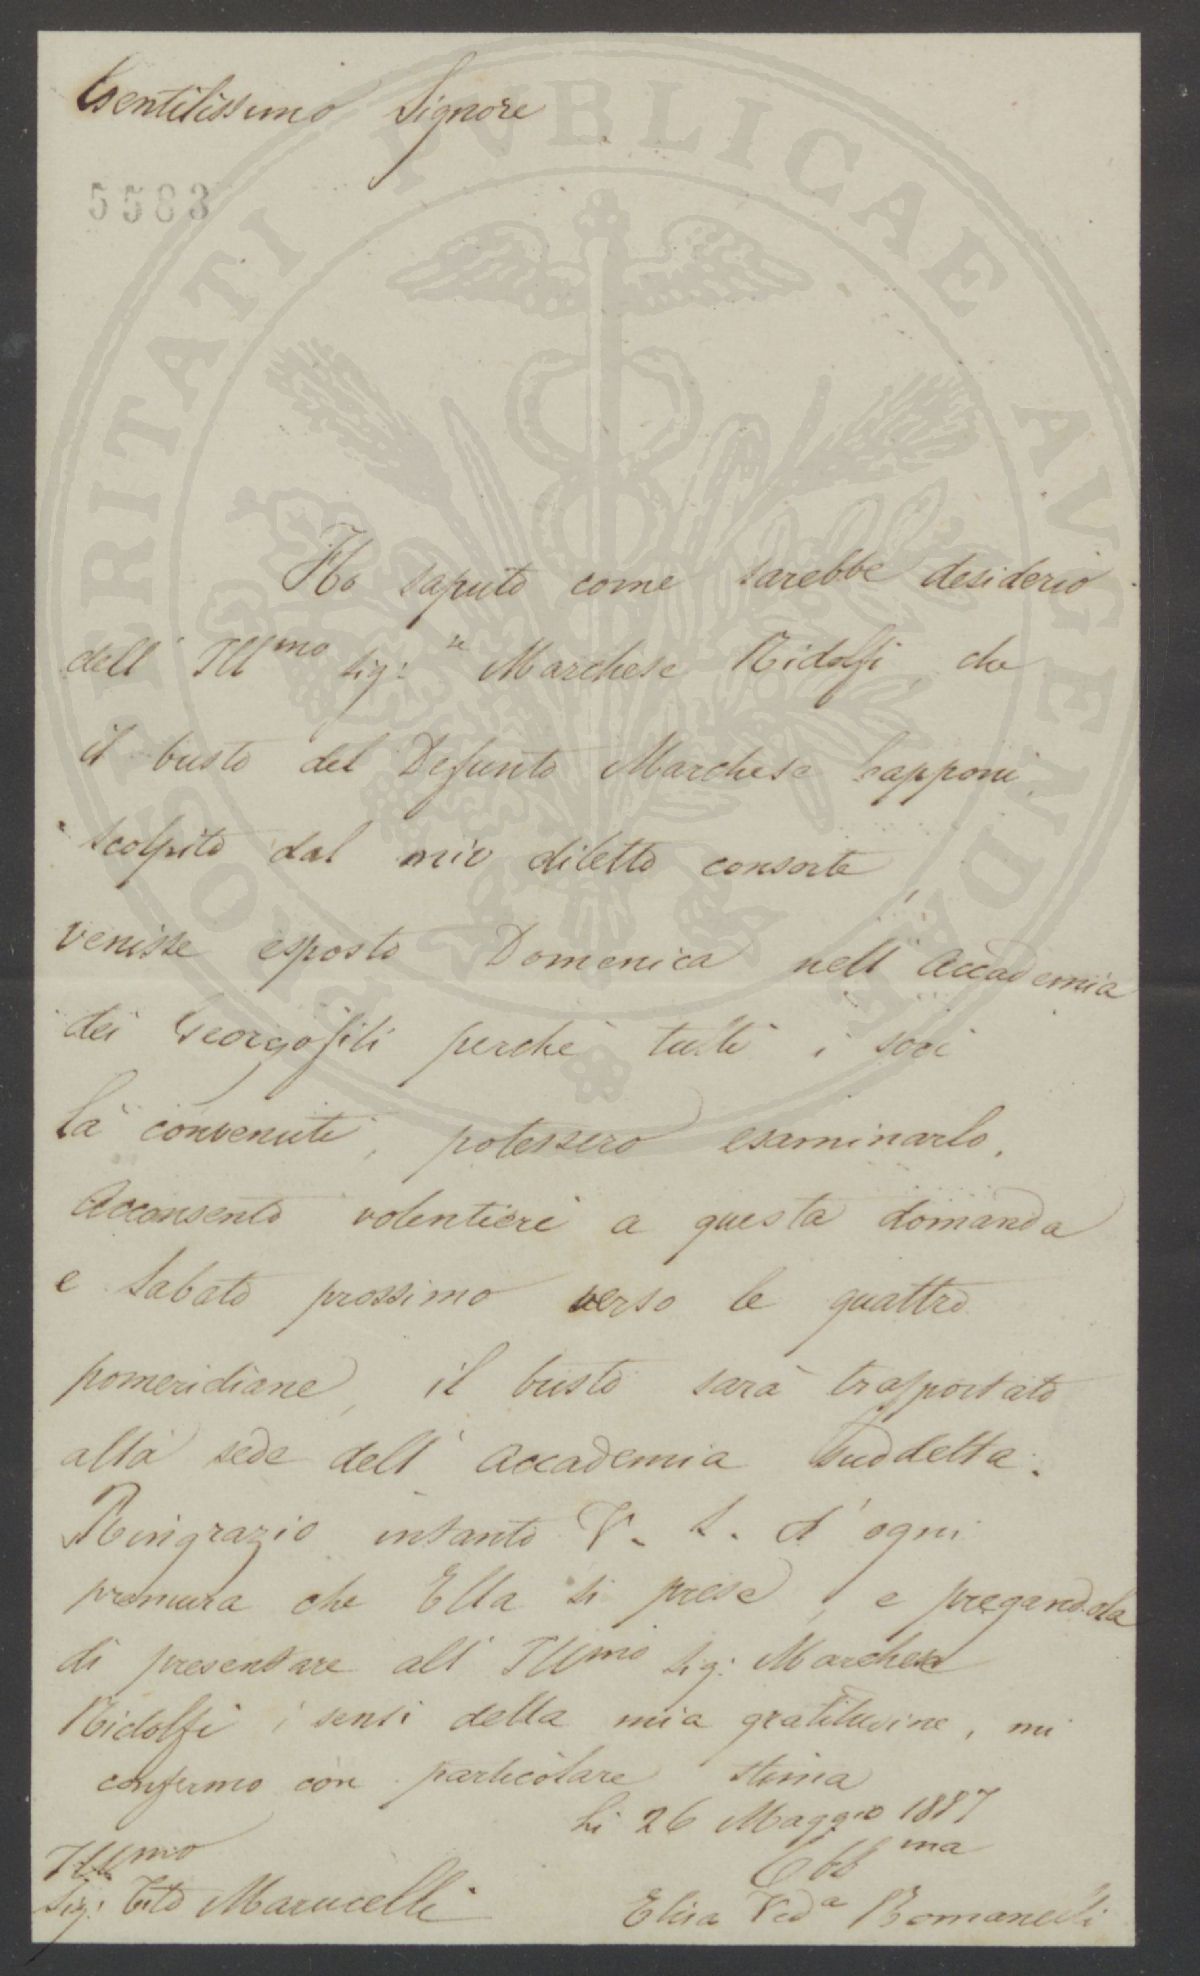 Gentilissimo Signore
5583
Ho saputo come sarebbe desiderio
dell' Ill.mo Sig:re Marchese Ridolfi, che
il busto del Defunto Marchese Capponi
scolpito dal mio diletto consorte,
venisse esposto Domenica nell' Accademia
dei Georgofili perchè tutti i soci
là convenuti, potessero esaminarlo.
Acconsento volentieri a questa domanda
e Sabato prossimo verso le quattro
pomeridiane, il busto sarà trasportato
alla sede dell' Accademia Suddetta.
Ringrazio intanto V. S. d' ogni
premura che Ella si prese, e pregandola
di presentare all' Ill.mo Sig: Marchese
Ridolfi i sensi della mia gratitudine, mi
confermo con particolare stima
Li 26 Maggio 1887
Obb ma
Ill mo
Sig: Tito Marucelli
Elisa Ved.a Romanelli
PROSPERITATI PVBLICAE AVGENDAE